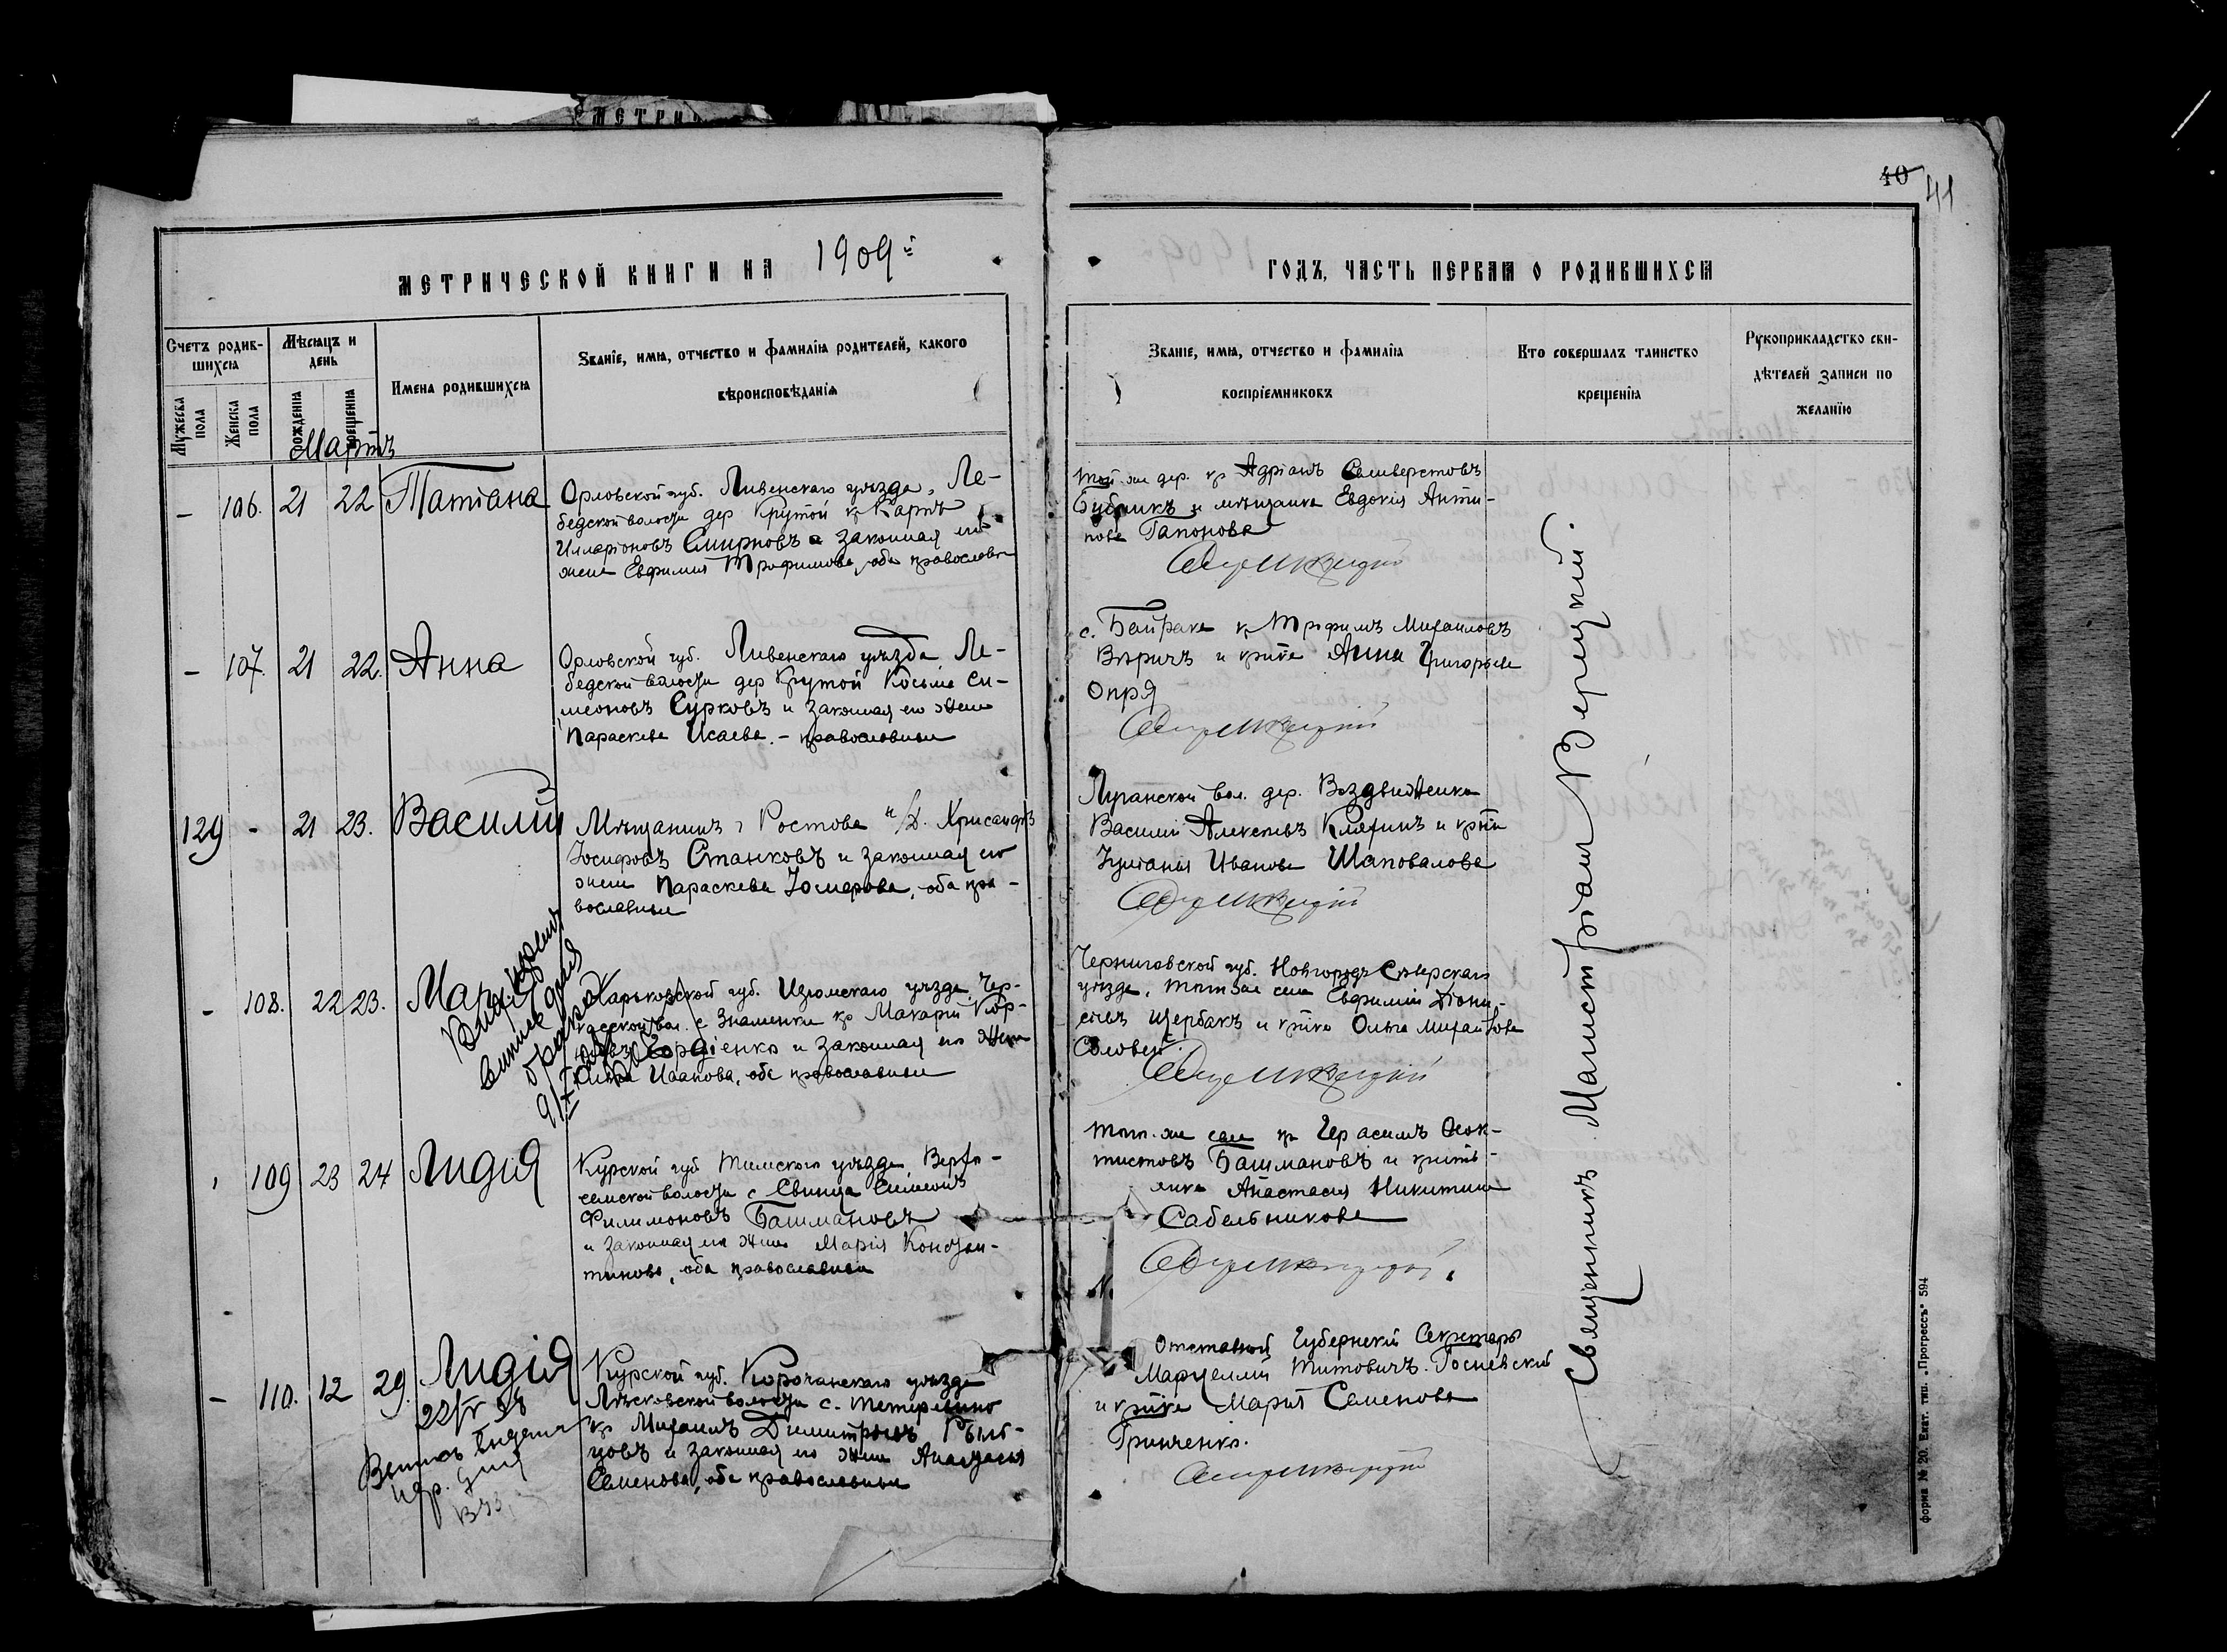 МЕТРИЧ
40
41
МЕТРИЧЕСКОЙ КНИГИ НА 1909й
ГОДЪ, ЧАСТЬ ПЕРВАЯ О РОДИВШИХСЯ
Счетъ родив-
шихся
Мѣсяцъ и
день
Имена родившихся
Званіе, имя, отчество и фамилія родителей, какого
вѣроисповѣданія
Мужеска
пола
Женска
пола
рожденія
крещенія
Званіе, имя, отчество и фамилія
воспріемниковъ
Кто совершалъ таинство
крещенія
Рукоприкладство сви-
дѣтелей записи по
желанію
Мартъ
– 106. 21 22 Татіана
Орловской губ. Ливенскаго уѣзда, Ле-
бедской волости дер Крутой кр Карпъ
Илларіоновъ Смирновъ и законная его
жена Евфимия Трофимова, оба православн
той-же дер. кр Адріанъ Селиверстовъ
Бубликъ и мѣщанка Евдокія Анти-
пова Гапонова
– 107. 21 22. Анна
Орловской губ. Ливенскаго уѣзда Ле-
бедской волости дер Крутой Косьма Си-
меоновъ Сурковъ и законная его жена
Параскева Исаева. – православные
с. Байрака к Трофимъ Михаиловъ
и кртка Анна Григорьева
Опря
129 - 21 23. Василій
Мѣщанинъ г Ростова н/Д. Хрисанфъ
Іосифовъ Станковъ и законная его
жена Параскева Гомерова, оба пра-
вославные
Луганской вол. дер. Воздвиженка
Василій Алексѣевъ Кляпинъ и кртка
Іуліанія Иванова Шаповалова
- 108. 22 23. Марія
Харьковской губ. Изюмскаго уѣзда, Чер-
касской вол. с Знаменки кр Макарій Кор-
Гордіенко и законная его жена
Иванова, оба православные
Черниговской губ. Новгородъ Сѣверскаго
уѣзда, села Евфимій Діони-
сіевъ Щербакъ и кртка Ольга Михайлова
Соловей.
109 23 24 Лидія
Курской губ Тимскаго уѣзда, Верхо-
семской волости с Свинца Симеонъ
Филимоновъ Башмановъ
и законная его жена Марія Констан-
тинова, оба православные
того-же села кр Герасимъ Ѳеок-
тистовъ Башмановъ и крестьян-
янка Анастасія Никитина
Сабельникова
– 110. 12 29. Лидія
Курской губ. Корочанскаго уѣзда
Лѣсковской волости с. Тетеревино
кр Михаилъ Димитріевъ Рыль-
цовъ и законная его жена Анастасія
Семенова, оба православные
Отставной Губернскій Секретарь
Марцеллій Титовичъ Госневскій
и кртка Марія Семенова
Гринченко.
Священникъ Магистріанъ Верецкій
форма № 20. Екат. тип. „Прогрессъ" 594